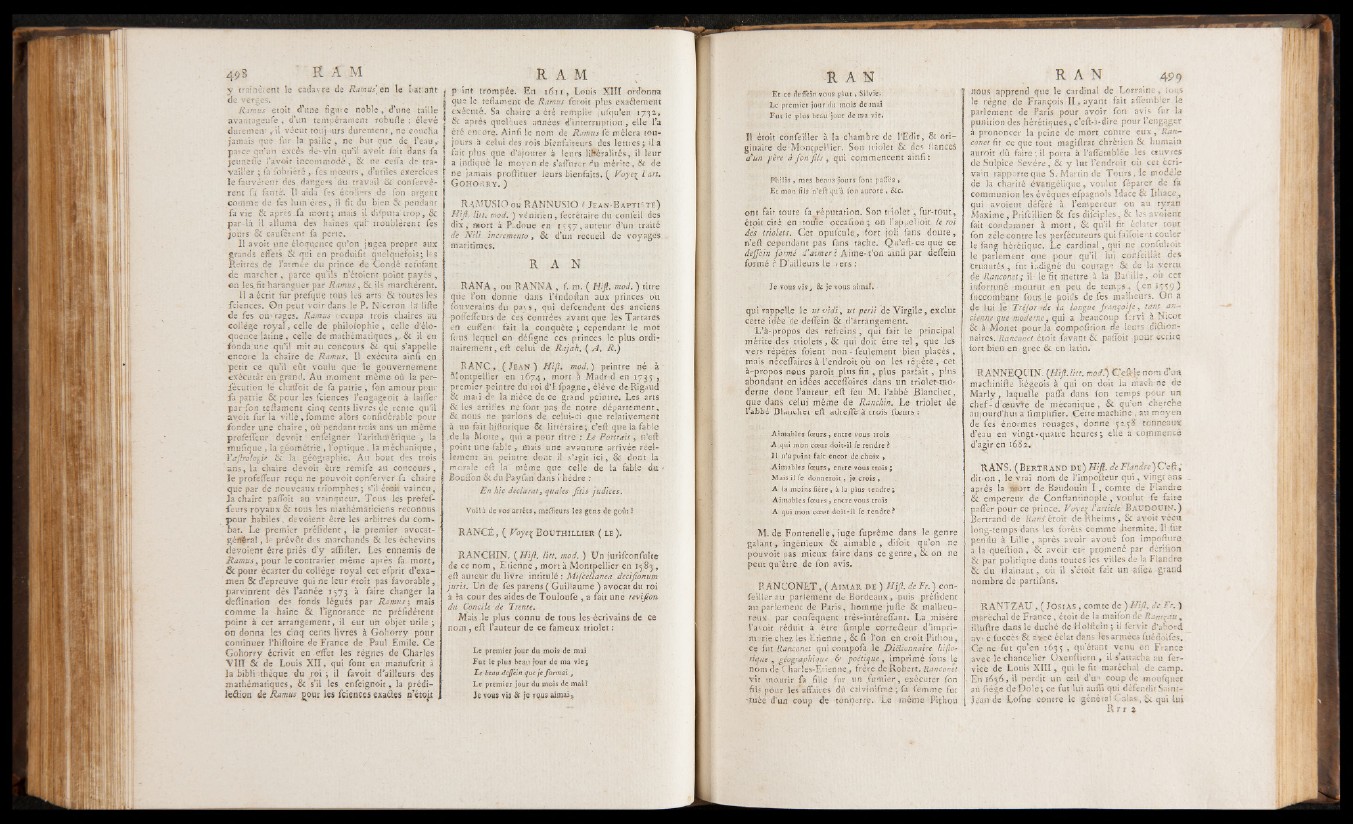 498 R A M
y traînèrent le cadavre de Ramus en le battant
de verges.
Ramus étoit d'une figure noble, d'une taille
avantageuse, d'un tempérament robuste : élevé
durement, il vécut toujours durement, ne coucha
jamais que sur la paille, ne but que de l'eau,
parce qu'un excès de vin qu'il avoit fait dans sa
jeunesse l'avoit incommodé, & ne cessa de tra-
vailler ; sa sobriété, ses mœurs, d'utiles exercices
le sauvèrent des dangers du travail & conservè-
rent sa santé. Il aida ses écoliers de son argent
comme de ses lumières, il fit du bien & pendant
sa vie & après sa mort ; mais il disputa trop, &
par-là il alluma des haines qui troublèrent ses
jours & causèrent sa perte.
Il avoit une éloquence qu'on jugea propre aux
grands effets & qui en produisit quelquefois ; les
Reitres de l'armée du prince de Condé refusant
de marcher, parce qu'ils n'étoient point payés,
on les fit haranguer par Ramus, & ils marchèrent.
Il a écrit sur presque tous les arts & toutes les
sciences. On peut voir dans le P. Niceron la liste
de ses ouvrages. Ramus occupa trois chaires au
collége royal, celle de philosophie, celle d'élo-
quence latine, celle de mathématiques, & il en
fonda une qu'il mit au concours & qui s'appelle
encore la chaire de Ramus. Il exécuta ainsi en
petit ce qu'il eût voulu que le gouvernement
exécutât en grand. Au moment même où la per-
sécution le chassoit de sa patrie, son amour pour
sa patrie & pour les sciences l'engageoit à laisser
par son testament cinq cents livres de rente qu'il
avoit sur la ville, somme alors considérable pour
fonder une chaire, où pendant trois ans un même
professeur devoit enseigner l'arithmétique, la
musique, la géométrie, l'optique, la méchanique,
l'astrologie & la géographie. Au bout des trois
ans, la chaire devoit être remise au concours,
le professeur reçu ne pouvoit conserver sa chaire
que par de nouveaux triomphes ; s'il étoit vaincu,
la chaire passoit au vainqueur. Tous les profes-
seurs royaux & tous les mathématiciens reconnus
pour habiles, devoient être les arbitres du com-
bat. Le premier président, le premier avocat-
général, le prévôt des marchands & les échevins
devoient être priés d'y assister. Les ennemis de
Ramus, pour le contrarier même après sa mort,
& pour écarter du collége royal cet esprit d'exa-
men & d'épreuve qui ne leur étoit pas favorable,
parvinrent dès l'année 1573 à faire changer la
destination des fonds légués par Ramus ; mais
comme la haine & l'ignorance ne présidèrent
point à cet arrangement, il eut un objet utile ;
on donna les cinq cents livres à Gohorry pour
continuer l'histoire de France de Paul Emile. Ce
Gohorry écrivit en effet les règnes de Charles
VIII & de Louis XII, qui sont en manuscrit à
la bibliothèque du roi ; il savoit d'ailleurs des
mathématiques, & s'il les enseignoit, la prédi-
lection de Ramus pour les sciences exactes n'étoit
R A M
point trompée. En 1611, Louis XIII ordonna
que le testament de Ramus seroit plus exactement
exécuté. Sa chaire a été remplie jusqu'en 1732,
& après quelques années d'interruption, elle l'a
été encore. Ainsi le nom de Ramus se mêlera tou-
jours à celui des rois bienfaiteurs des lettres ; il a
fait plus que d'ajouter à leurs libéralités, il leur
a indiqué le moyen de s'assurer du mérite, & de
ne jamais prostituer leurs bienfaits. ( Voyez l'art.
GOHORRY. )
RAMUSIO ou RANNUSIO ( JEAN-BAPTISTE)
Hist. litt. mod. ) vénitien, secrétaire du conseil des
dix, mort à Padoue en 1557, auteur d'un traité
de Nili incremento, & d'un recueil de voyages
maritimes.
R A N
RANA, ou RANNA, s. m. ( Hist. mod. ) titre
que l'on donne dans l'indostan aux princes ou
souverains du pays, qui descendent des anciens
possesseurs de ces contrées avant que les Tartares
en eussent fait la conquête ; cependant le mot
sous lequel on désigne ces princes le plus ordi-
nairement, est celui de Rajah. ( A. R.)
RANC, ( JEAN ) Hist. mod. ) peintre né à
Montpellier en 1674, mort à Madrid en 1735,
premier peintre du roi d'Espagne, élève de Rigaud
& mari de la nièce de ce grand peintre. Les arts
& les artistes ne sont pas de notre département,
& nous ne parlons de celui-ci que relativement
à un fait historique & littéraire, c'est que la fable
de la Motte, qui a pour titre : Le Portrait, n'est
point une fable, mais une avanture arrivée réel-
lement au peintre dont il s'agit ici, & dont la
morale est la même que celle de la fable du
Bouffon & du Paysan dans Phèdre :
En hic declarat, quales sitis judices.
Voilà de vos arrêts, messieurs les gens de goût !
RANCÉ, ( Voyez BOUTHILLIER ( LE ).
RANCHIN. ( Hist. litt. mod. ) Un jurisconsulte
de ce nom, Etienne, mort à Montpellier en 1583,
est auteur du livre intitulé : Miscellanea decisionum
juris. Un de ses parens ( Guillaume ) avocat du roi
à la cour des aides de Toulouse, a fait une revision
du Concile de Trente.
Mais le plus connu de tous les écrivains de ce
nom, est l'auteur de ce fameux triolet :
Le premier jour du mois de mai
Fut le plus beau jour de ma vie ;
Le beau dessein que je formai,
Le premier jour du mois de mai !
Je vous vis & je vous aimai,
R A N
Et ce dessein vous plut, Silvie ;
Le premier jour du mois de mai
Fut le plus beau jour de ma vie.
Il étoit conseiller à la chambre de l'Edit, & ori-
ginaire de Montpellier. Son triolet & des stances
d'un père à son fils, qui commencent ainsi :
Philis, mes beaux jours sont passés,
Et mon fils n'est qu'à son aurore, &c.
ont fait toute sa réputation. Son triolet, sur-tout,
étoit cité en toute occasion ; on l'appelloit le roi
des triolets. Cet opuscule, fort joli sans doute,
n'est cependant pas sans tache. Qu'est-ce que ce
dessein formé d'aimer ? Aime-t'on ainsi par dessein
formé ? D'ailleurs le vers :
Je vous vis, & je vous aimai.
qui rappelle le ut vidi, ut perii de Virgile, exclut
cette idée de dessein & d'arrangement.
L'à-propos des refreins, qui fait le principal
mérite des triolets, & qui doit être tel, que les
vers répétés soient non-seulement bien placés,
mais nécessaires à l'endroit où on les répète, cet
à-propos nous paroît plus fin, plus parfait, plus
abondant en idées accessoires dans un triolet mo-
derne dont l'auteur est feu M. l'abbé Blanchet,
que dans celui même de Ranchin. Le triolet de
l'abbé Blanchet est adressé à trois sœurs :
Aimables sœurs, entre vous trois
A qui mon cœur doit-il se rendre ?
Il n'a point fait encor de choix,
Aimables sœurs, entre vous trois ;
Mais il se donneroit, je crois,
A la moins fière, à la plus tendre ;
Aimables sœurs, entre vous trois
A qui mon cœur doit-il se rendre ?
M. de Fontenelle, juge suprême dans le genre
galant, ingénieux & aimable, disoit qu'on ne
pouvoit pas mieux faire dans ce genre, & on ne
peut qu'être de son avis.
RANCONET, ( AIMAR DE ) Hist. de Fr.) con-
seiller au parlement de Bordeaux, puis président
au parlement de Paris, homme juste & malheu-
reux, par conséquent très-intéressant. La misère
l'avoit réduit à être simple correcteur d'impri-
merie chez les Etienne, & si l'on en croit Pithou,
ce fut Ranconet qui composa le Dictionnaire histo-
rique, géographique & poétique, imprimé sous le
nom de Charles-Etienne, frère de Robert. Ranconet
vit mourir sa fille sur un fumier, exécuter son
fils pour les affaires du calvinisme ; sa femme fut
tuée d'un coup de tonnerre. Le même Pithou
R A N 499
nous apprend que le cardinal de Lorraine, sous
le règne de François II, ayant fait assembler le
parlement de Paris pour avoir son avis sur la
punition des hérétiques, c'est-à-dire pour l'engager
à prononcer la peine de mort contre eux, Ran-
conet fit ce que tout magistrat chrétien & humain
auroit dû faire ; il porta à l'assemblée les œuvres
de Sulpice Sevère, & y lut l'endroit où cet écri-
vain rapporte que S. Martin de Tours, le modèle
de la charité évangélique, voulut séparer de sa
communion les évêques espagnols Idace & Ithace,
qui avoient déféré à l'empereur ou au tyran
Maxime, Priscillien & ses disciples, & les avoient
fait condamner à mort, & qu'il fit éclater tout
son zèle contre les persécuteurs qui faisoient couler
le sang hérétique. Le cardinal, qui ne consultoit
le parlement que pour qu'il lui conseillât des
cruautés, fut indigné du courage & de la vertu
de Ranconet ; il le fit mettre à la Bastille, où cet
infortuné mourut en peu de temps, ( en 1559 )
succombant sous le poids de ses malheurs. On a
de lui le Trésor de la langue françoise, tant an-
cienne que moderne, qui a beaucoup servi à Nicot
& à Monet pour la composition de leurs diction-
naires. Ranconet étoit savant & passoit pour écrire
fort bien en grec & en latin.
RANNEQUIN. (Hist. litt. mod.) C'est le nom d'un
machiniste liégeois à qui on doit la machine de
Marly, laquelle passa dans son temps pour un
chef-d'œuvre de mécanique, & qu'on cherche
aujourd'hui à simplifier. Cette machine, au moyen
de ses énormes rouages, donne 5258 tonneaux
d'eau en vingt-quatre heures ; elle a commencé
d'agir en 1682.
RANS. (BERTRAND DE) Hist. de Flandre) C'est,
dit-on, le vrai nom de l'imposteur qui, vingt ans
après la mort de Baudouin I, comte de Flandre
& empereur de Constantinople, voulut se faire
passer pour ce prince. Voyez l'article BAUDOUIN.)
Bertrand de Rans étoit de Rheims, & avoit vécu
long-temps dans les forêts comme hermite. Il fut
pendu à Lille, après avoir avoué son imposture
à la question, & avoir été promené par dérision
& par politique dans toutes les villes de la Flandre
& du Hainaut, où il s'étoit fait un assez grand
nombre de partisans.
RANTZAU, ( JOSIAS, comte de ) Hist. de Fr. )
maréchal de France, étoit de la maison de Rantzau,
illustre dans le duché de Holstein ; il servit d'abord
avec succès & avec éclat dans les armées suédoises.
Ce ne fut qu'en 1635, qu'étant venu en France
avec le chancelier Oxenstiern, il s'attacha au ser-
vice de Louis XIII, qui le fit maréchal de camp.
En 1636, il perdit un œil d'un coup de mousquet
au siége de Dole ; ce fut lui aussi qui défendit Saint-
Jean de Losne contre le général Galas, & qui lui
Rrr 2